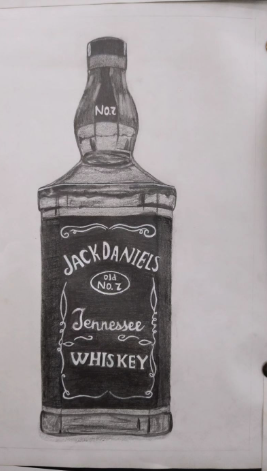 No.7
JACK DANIELS
Old
No. 7
Jennessee
WHISKEY